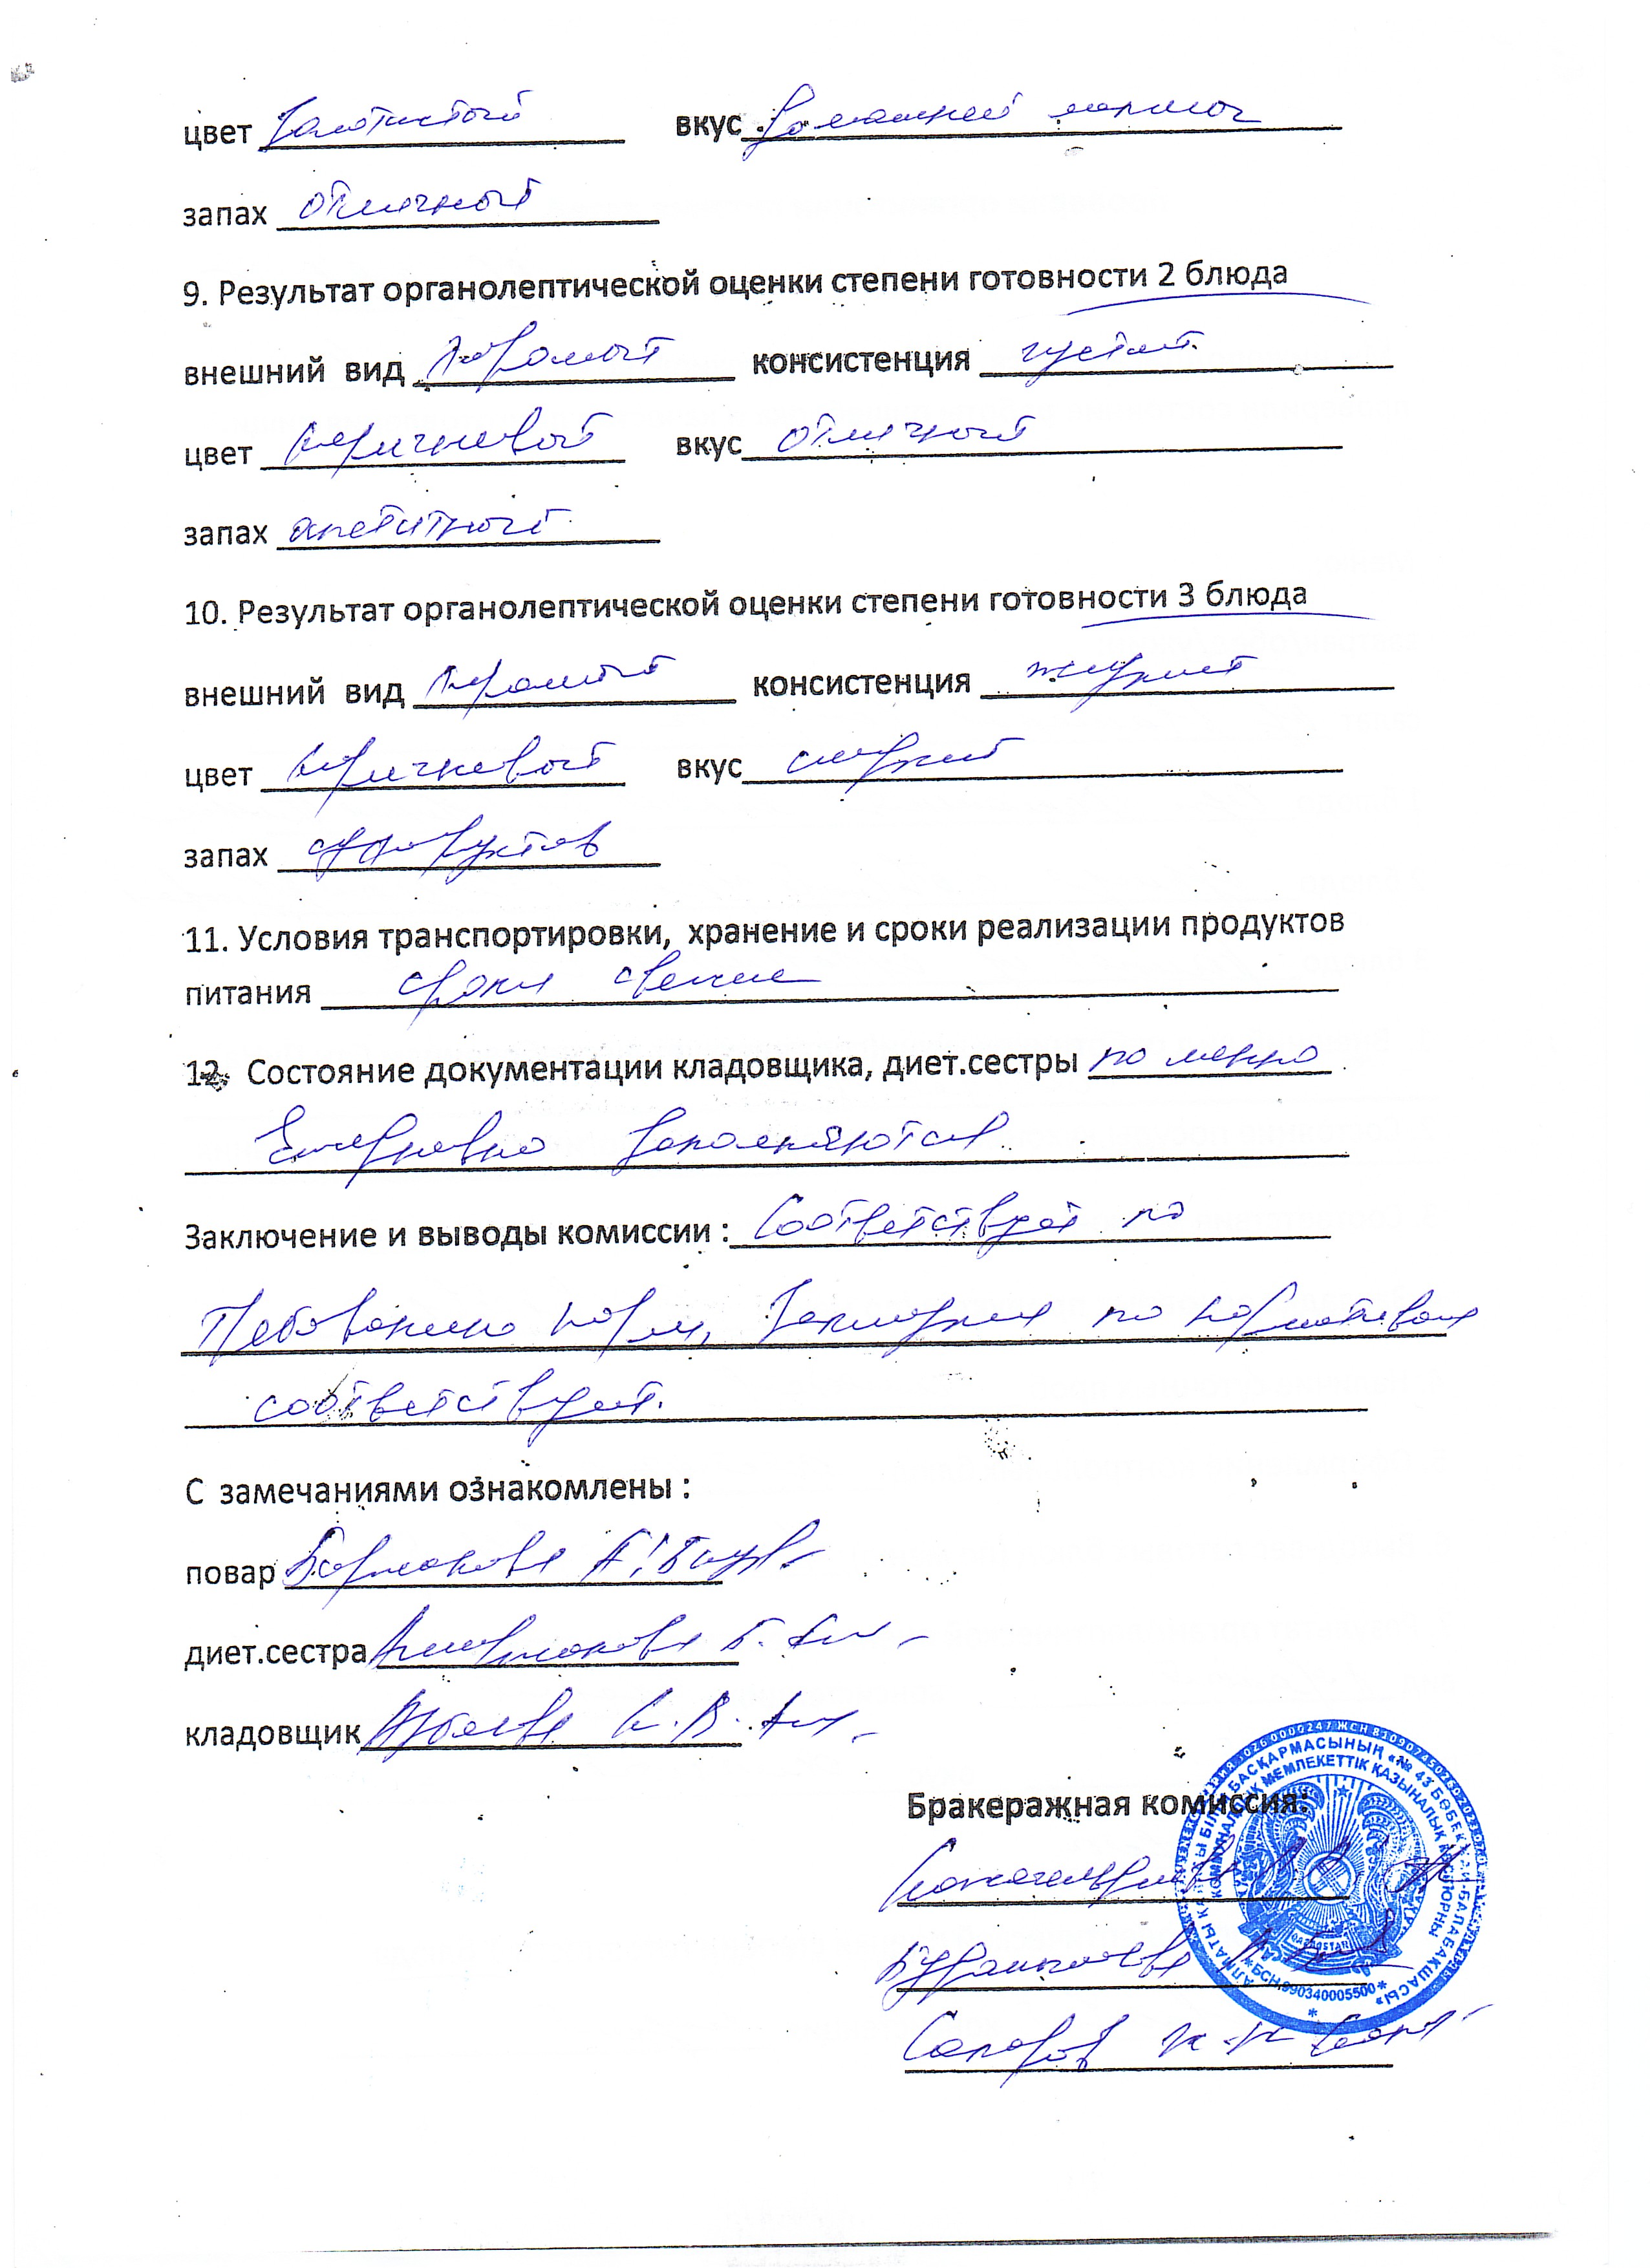 цвет золотистый вкус домашний
запах отличный
9. Результат органолептической оценки степени готовности 2 блюда
внешний вид хороший консистенция густая
цвет коричневый вкус отличный
запах апетитный
10. Результат органолептической оценки степени готовности 3 блюда
внешний вид хороший консистенция жидкий
цвет коричневый вкус сладкий
запах сухофруктов
11. Условия транспортировки, хранение и сроки реализации продуктов
питания сроки свежие
12. Состояние документации кладовщика, диет.сестры по меню
Ежедневно заполняются
Заключение и выводы комиссии : Соответствует по
требованию норм, Закладки по нормативам
соответствует.
С замечаниями ознакомлены :
повар
диет.сестра
кладовщик
Бракеражная комиссия:
АЛМАТЫ ҚАЛАСЫ БІЛІМ БАСҚАРМАСЫНЫҢ «№ 43 БӨБЕКЖАЙ-БАЛАБАҚШАСЫ»
КОММУНАЛДЫҚ МЕМЛЕКЕТТІК ҚАЗЫНАЛЫҚ КӘСІПОРНЫ
*БСН 990340005500*